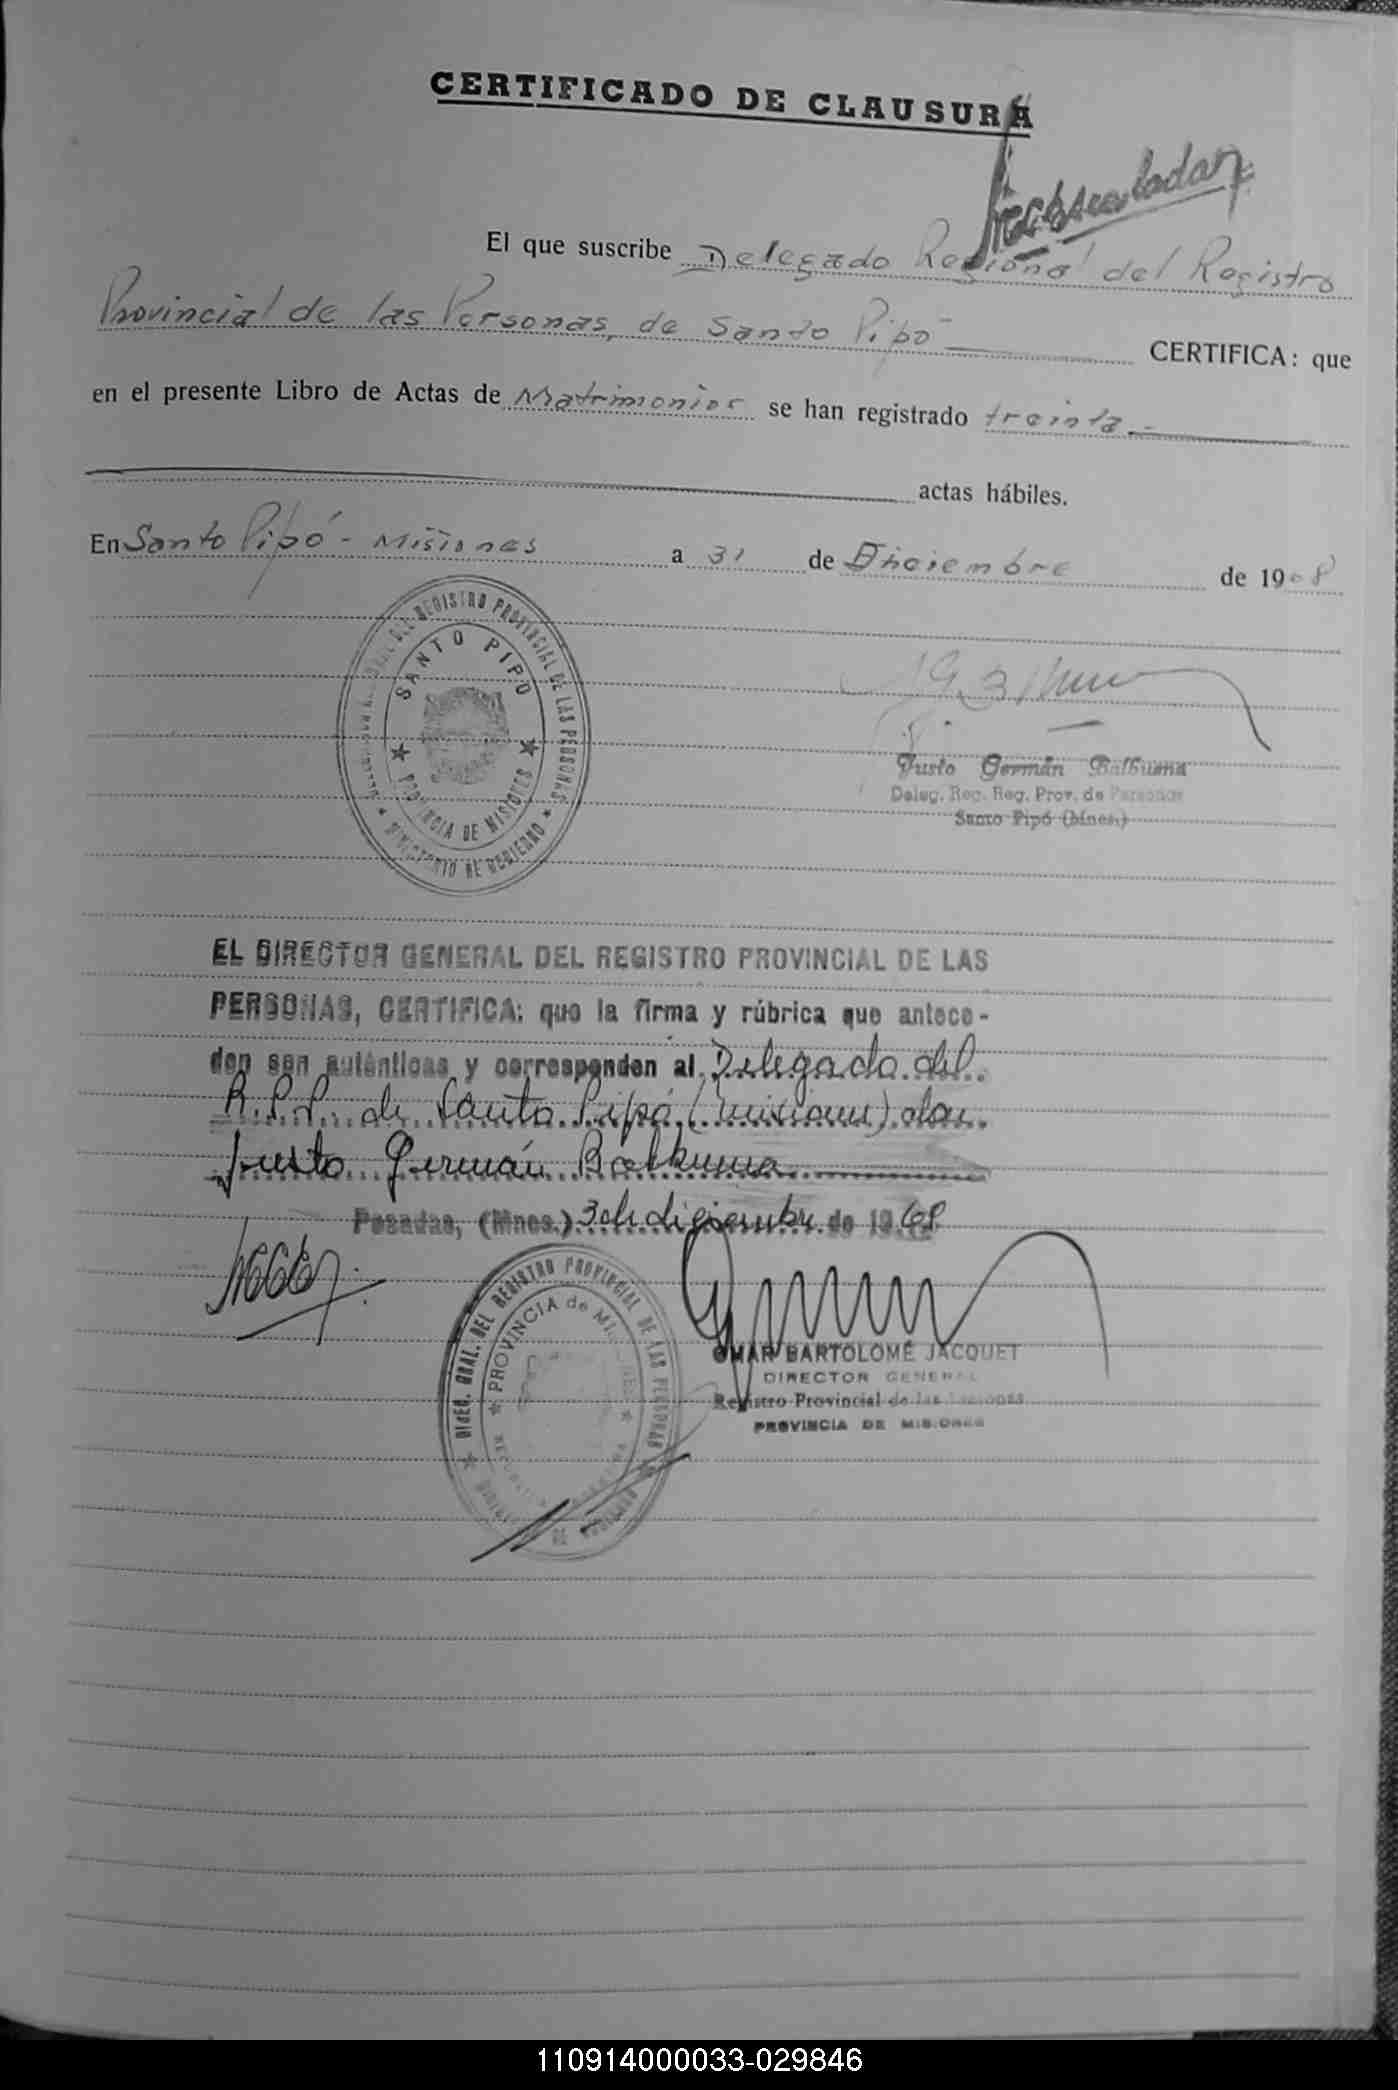 CERTIFICADO DE CLAUSURA
El que suscribe Delegado Regional del Registro
Provincial de las Personas, de Santo Pipó CERTIFICA: que
en el presente Libro de Actas de Matrimonios se han registrado treinta
actas hábiles.
En Santo Pipó - Misiones a 31 de Diciembre de 1968
SANTO PIPO
PROVINCIA DE MISIONES
REGISTRO PROVINCIAL DE LAS PERSONAS
MINISTERIO DE GOBIERNO
Justo Germán Balbuena
Deleg. Reg. Reg. Prov. de Personas
Santo Pipó (Mnes.)
EL DIRECTOR GENERAL DEL REGISTRO PROVINCIAL DE LAS
PERSONAS, CERTIFICA: que la firma y rúbrica que antece-
den son auténticas y corresponden al Delegado del
R.P.P. de Santo Pipó (Misiones) don
Justo Germán Balbuena
Posadas, (Mnes.) 3 de diciembre de 1968
DIREC. GRAL. DEL REGISTRO PROVINCIAL DE LAS PERSONAS
PROVINCIA de
OMAR BARTOLOMÉ JACQUET
DIRECTOR GENERAL
Registro Provincial de las Personas
PROVINCIA DE MISIONES
110914000033-029846